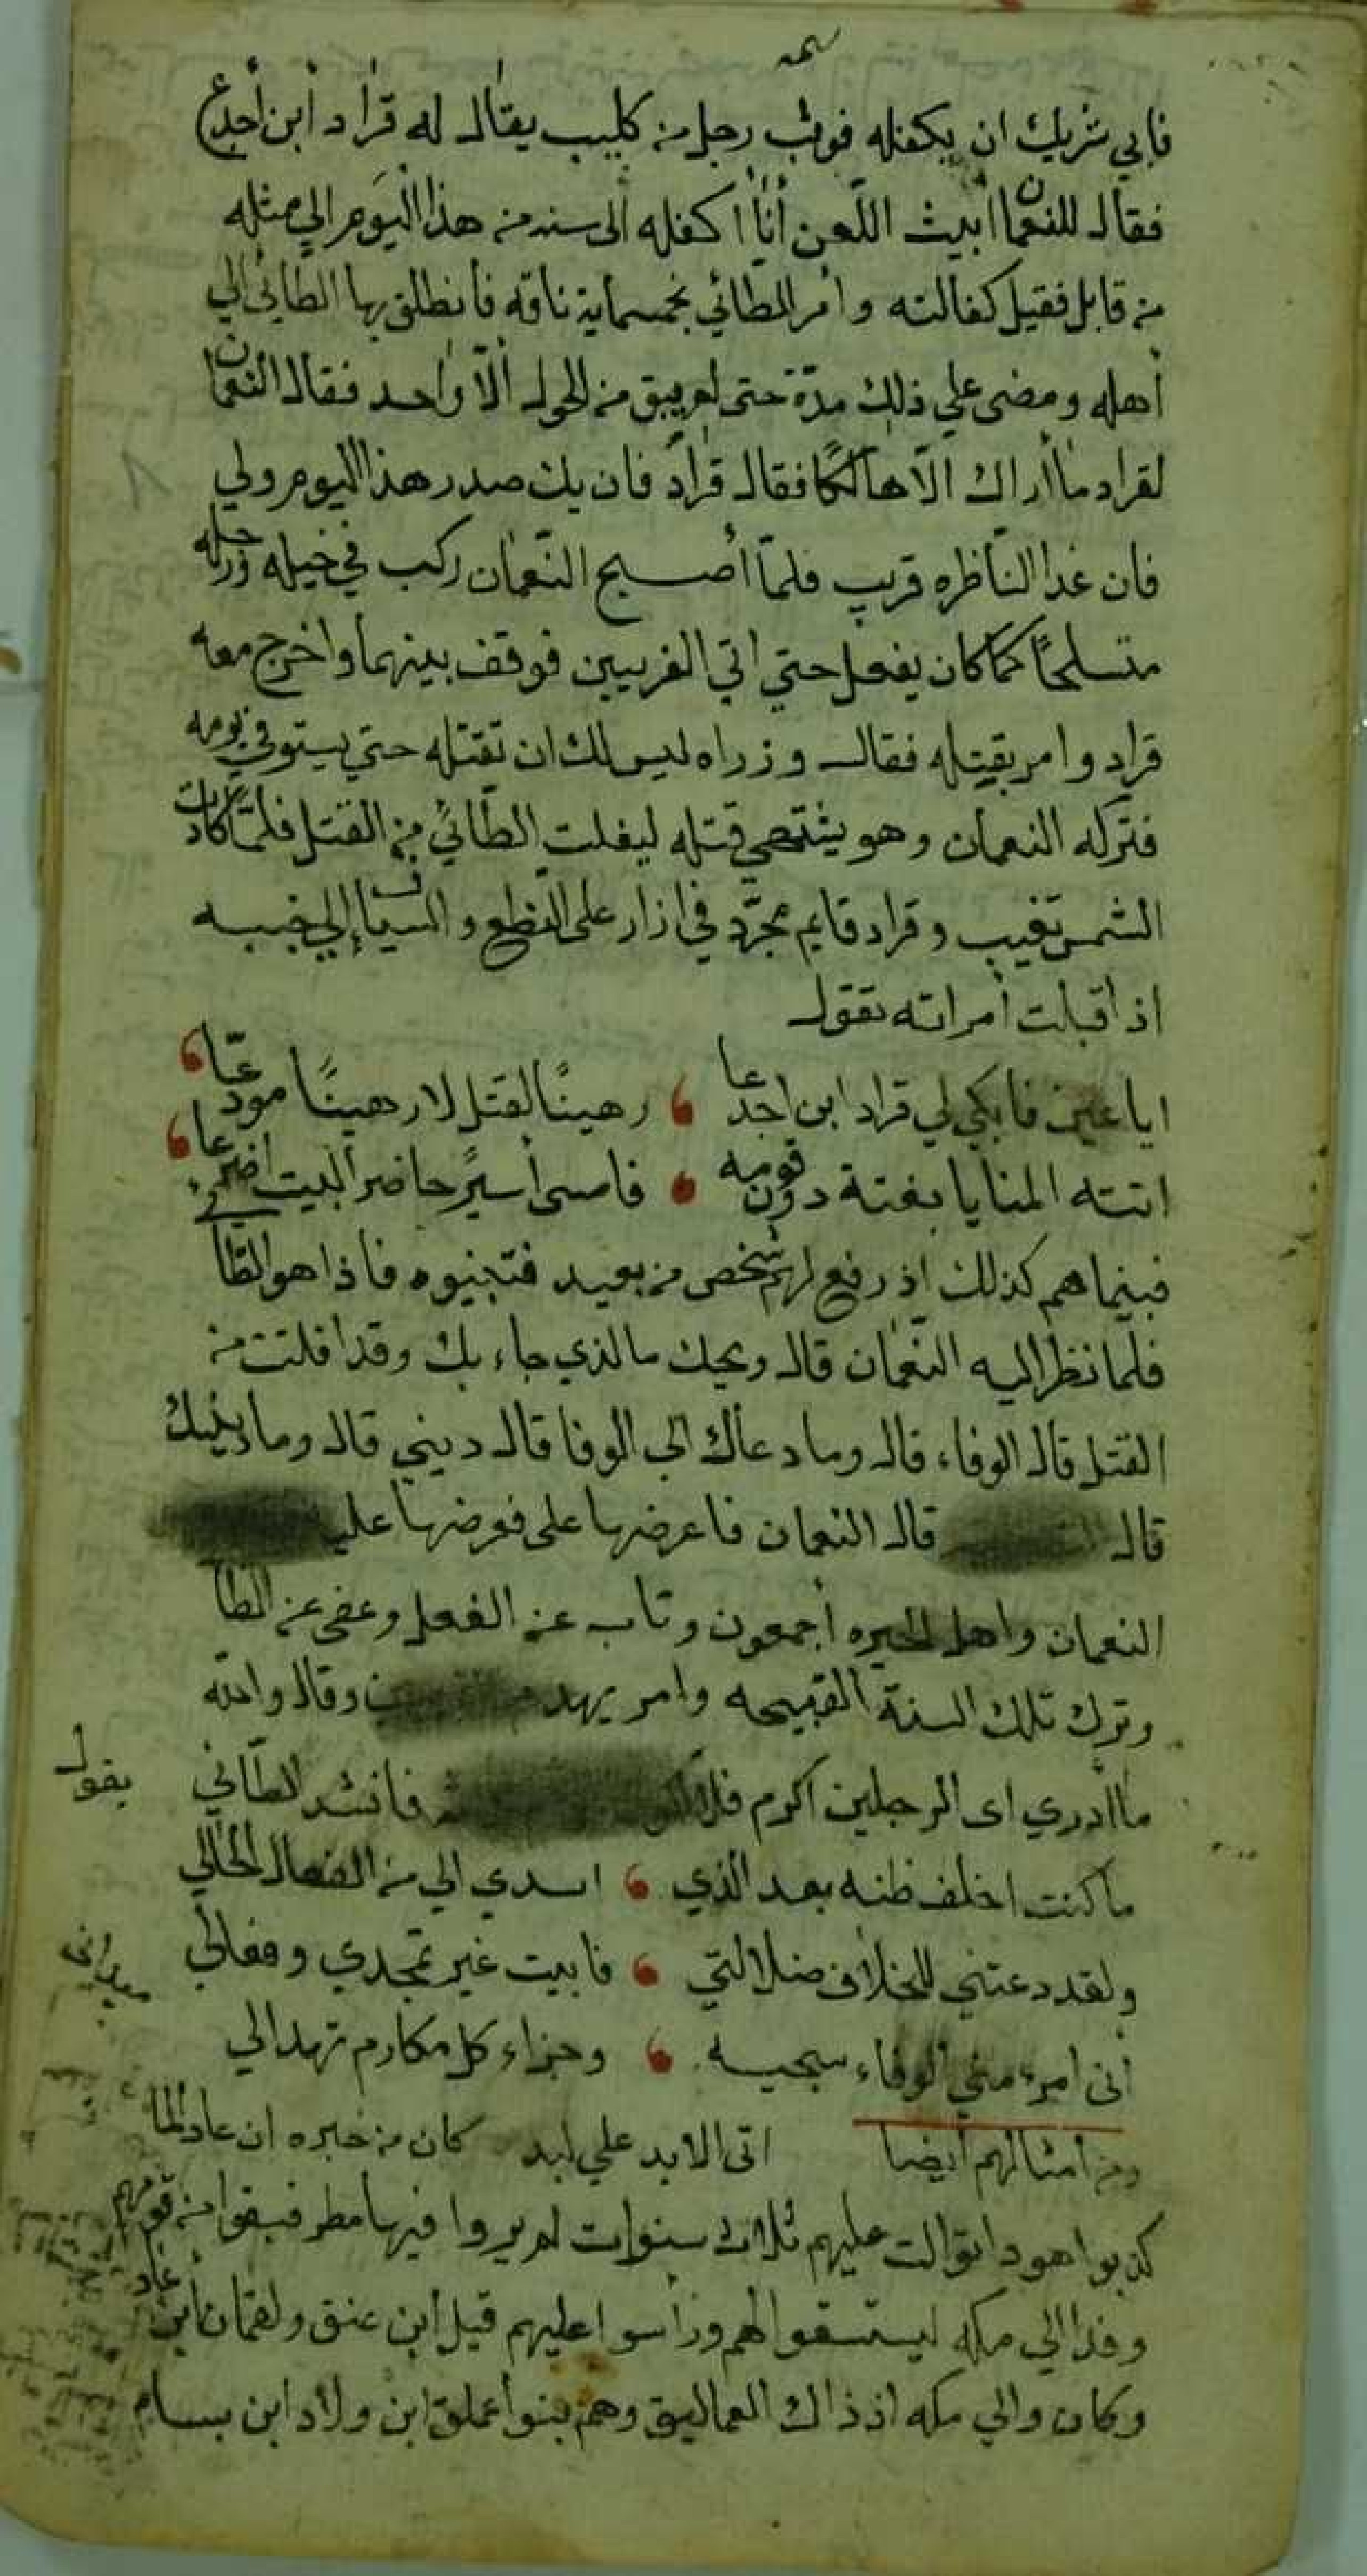 فابي شريك ان يكفله فوثب رجل من كليب يقال له قراد ابن أجدع
فقال للنعمان ابيت اللّعن أنا اكفله الى سنه من هذا اليَوم الي مثله
من قابل فقيل كفالته وامر للطائي بخمسماية ناقه فأنطلق بها الطائي الي
أهله ومضى علي ذلك مدّة حتى لم يبق من الحول ألّا واحد فقال النعمان
لقراد ما أراك الّا هالكًا فقال قرادّ فان يك صدر هذا اليوم ولي
فان غدا لناظره قريب فلمّا أصبح النّعمان ركب في خيله ورجله
متسلحًا كما كان يفعل حتي اتي الغريبين فوقف بينهما واخرج معه
قراد وامر بقتله فقال وزراه ليس لك ان تقتله حتي يستوفي يومه
فتركه النعمان وهو يشتهي قتله ليفلت الطّائي من القتل فلمّا كادت
الشمس تغيب وقراد قايم مجرّد في ازار على النطع والسياف إلي جنبه
اذ اقبلت أمراته تقول
ايا عين فابكي لي قراد ابن اجدعا رهينًا لقتل لا رهينًا مودّعا
اتته المنايا بغتة دون قومه فامسى أسيرً حاضر البيت اضرعا
فبينما هم كذلك اذ رفع لهم شخص من بعيد فتجنبوه فاذا هو الطّا
فلما نظر اليه النعمان قال ويحك ما الذي جاء بك وقد افلتت من
القتل قال الوفاء قال وما دعاك الي الوفا قال ديني قال وما دينك
قال قال النعمان فاعرضها على فعرضها عليه
النعمان واهل الحيره أجمعون وتاب عن الفعل وعفى عن الطّا
وترك تلك السنة القبيحه وامر بهد وقال والله
ما أدري اى الرجلين اكرم فانشد الطّائي يقول
ما كنت اخلف ظنه بعد الذي اسدي الي من الفعال الخالي
ولقد دعتني للخلاف ضلالتي فابيت غير تمجدي وفعالي
أني امرء مني الوفاء سجيه وجزاء كل مكارم تهدالي
ميداني
ومن امثالهم ايضا اتى الابد علي لبد كان من خبره ان عاد لما
كذبوا هودا توالت عليهم ثلاث سنوات لم يروا فيها مطر فبقوا من قومهم
وفدا الي مكه ليستسقوا لهم ورأسوا عليهم قيل أبن عنق ولقمان أبن عاد
وكان والي مكه اذ ذاك العماليق وهم بنوا عملق ابن ولاد ابن بسام